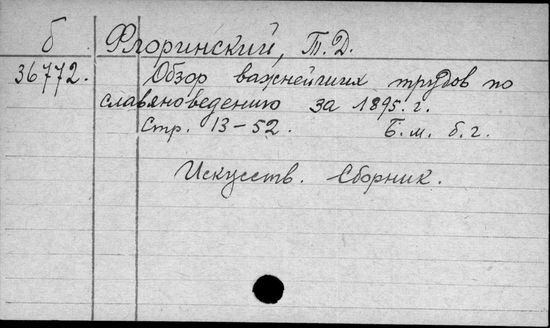 б Флоринский, Т. Д.
36772. Обзор важнейших трудов по
славяноведению за 1895 г.
Стр. 13-52. Б. м. б. г.
Искусств. Сборник.